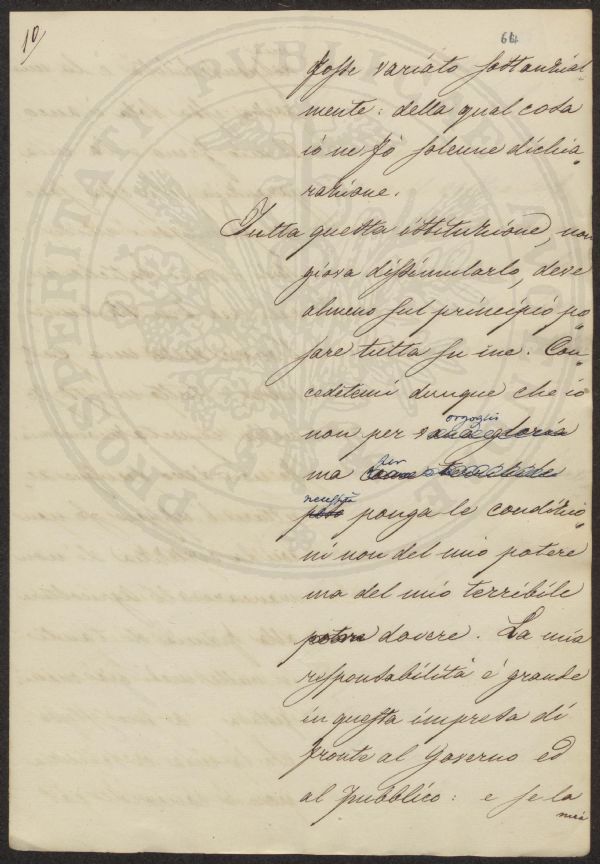 10/
64
fosse variato sostanzial
mente: della qual cosa
io ne fò solenne dichia
razione.
Tutta questa istituzione, non
giova dissimularlo, deve
almeno sul principio po
sare tutta su me. Con
cedetemi dunque che io
orgoglio
non per vanagloria
per
ma come
necessità
peso ponga le condizio
ni non del mio potere
ma del mio terribile
potere dovere. La mia
responsabilità è grande
in questa impresa di
fronte al Governo ed
al pubblico: e se la
mia
PROSPERITATI PUBLICAE